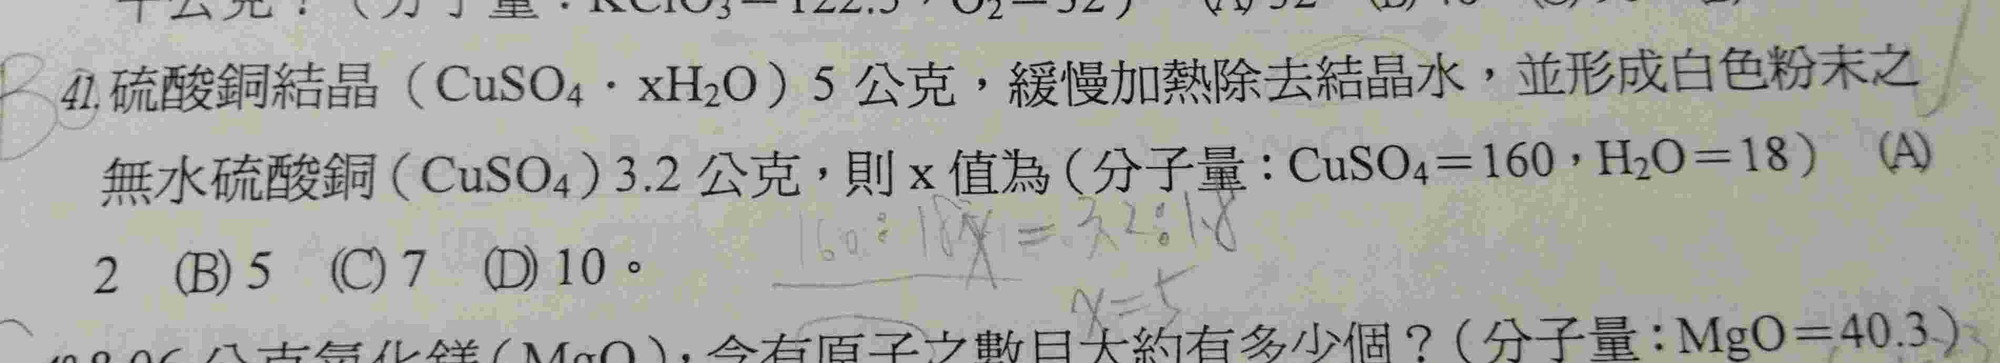 千公克？（分子量：KClO₃＝122.5，O₂＝32） (A) 32
B 41.硫酸銅結晶（CuSO₄．xH₂O）5 公克，緩慢加熱除去結晶水，並形成白色粉末之
無水硫酸銅（CuSO₄）3.2 公克，則 x 值為（分子量：CuSO₄＝160，H₂O＝18） (A)
160:18x=3.2:1.8
2 (B) 5 (C) 7 (D) 10。
x=5
8.06 公克氧化鎂（MgO），含有原子之數目大約有多少個？（分子量：MgO＝40.3）